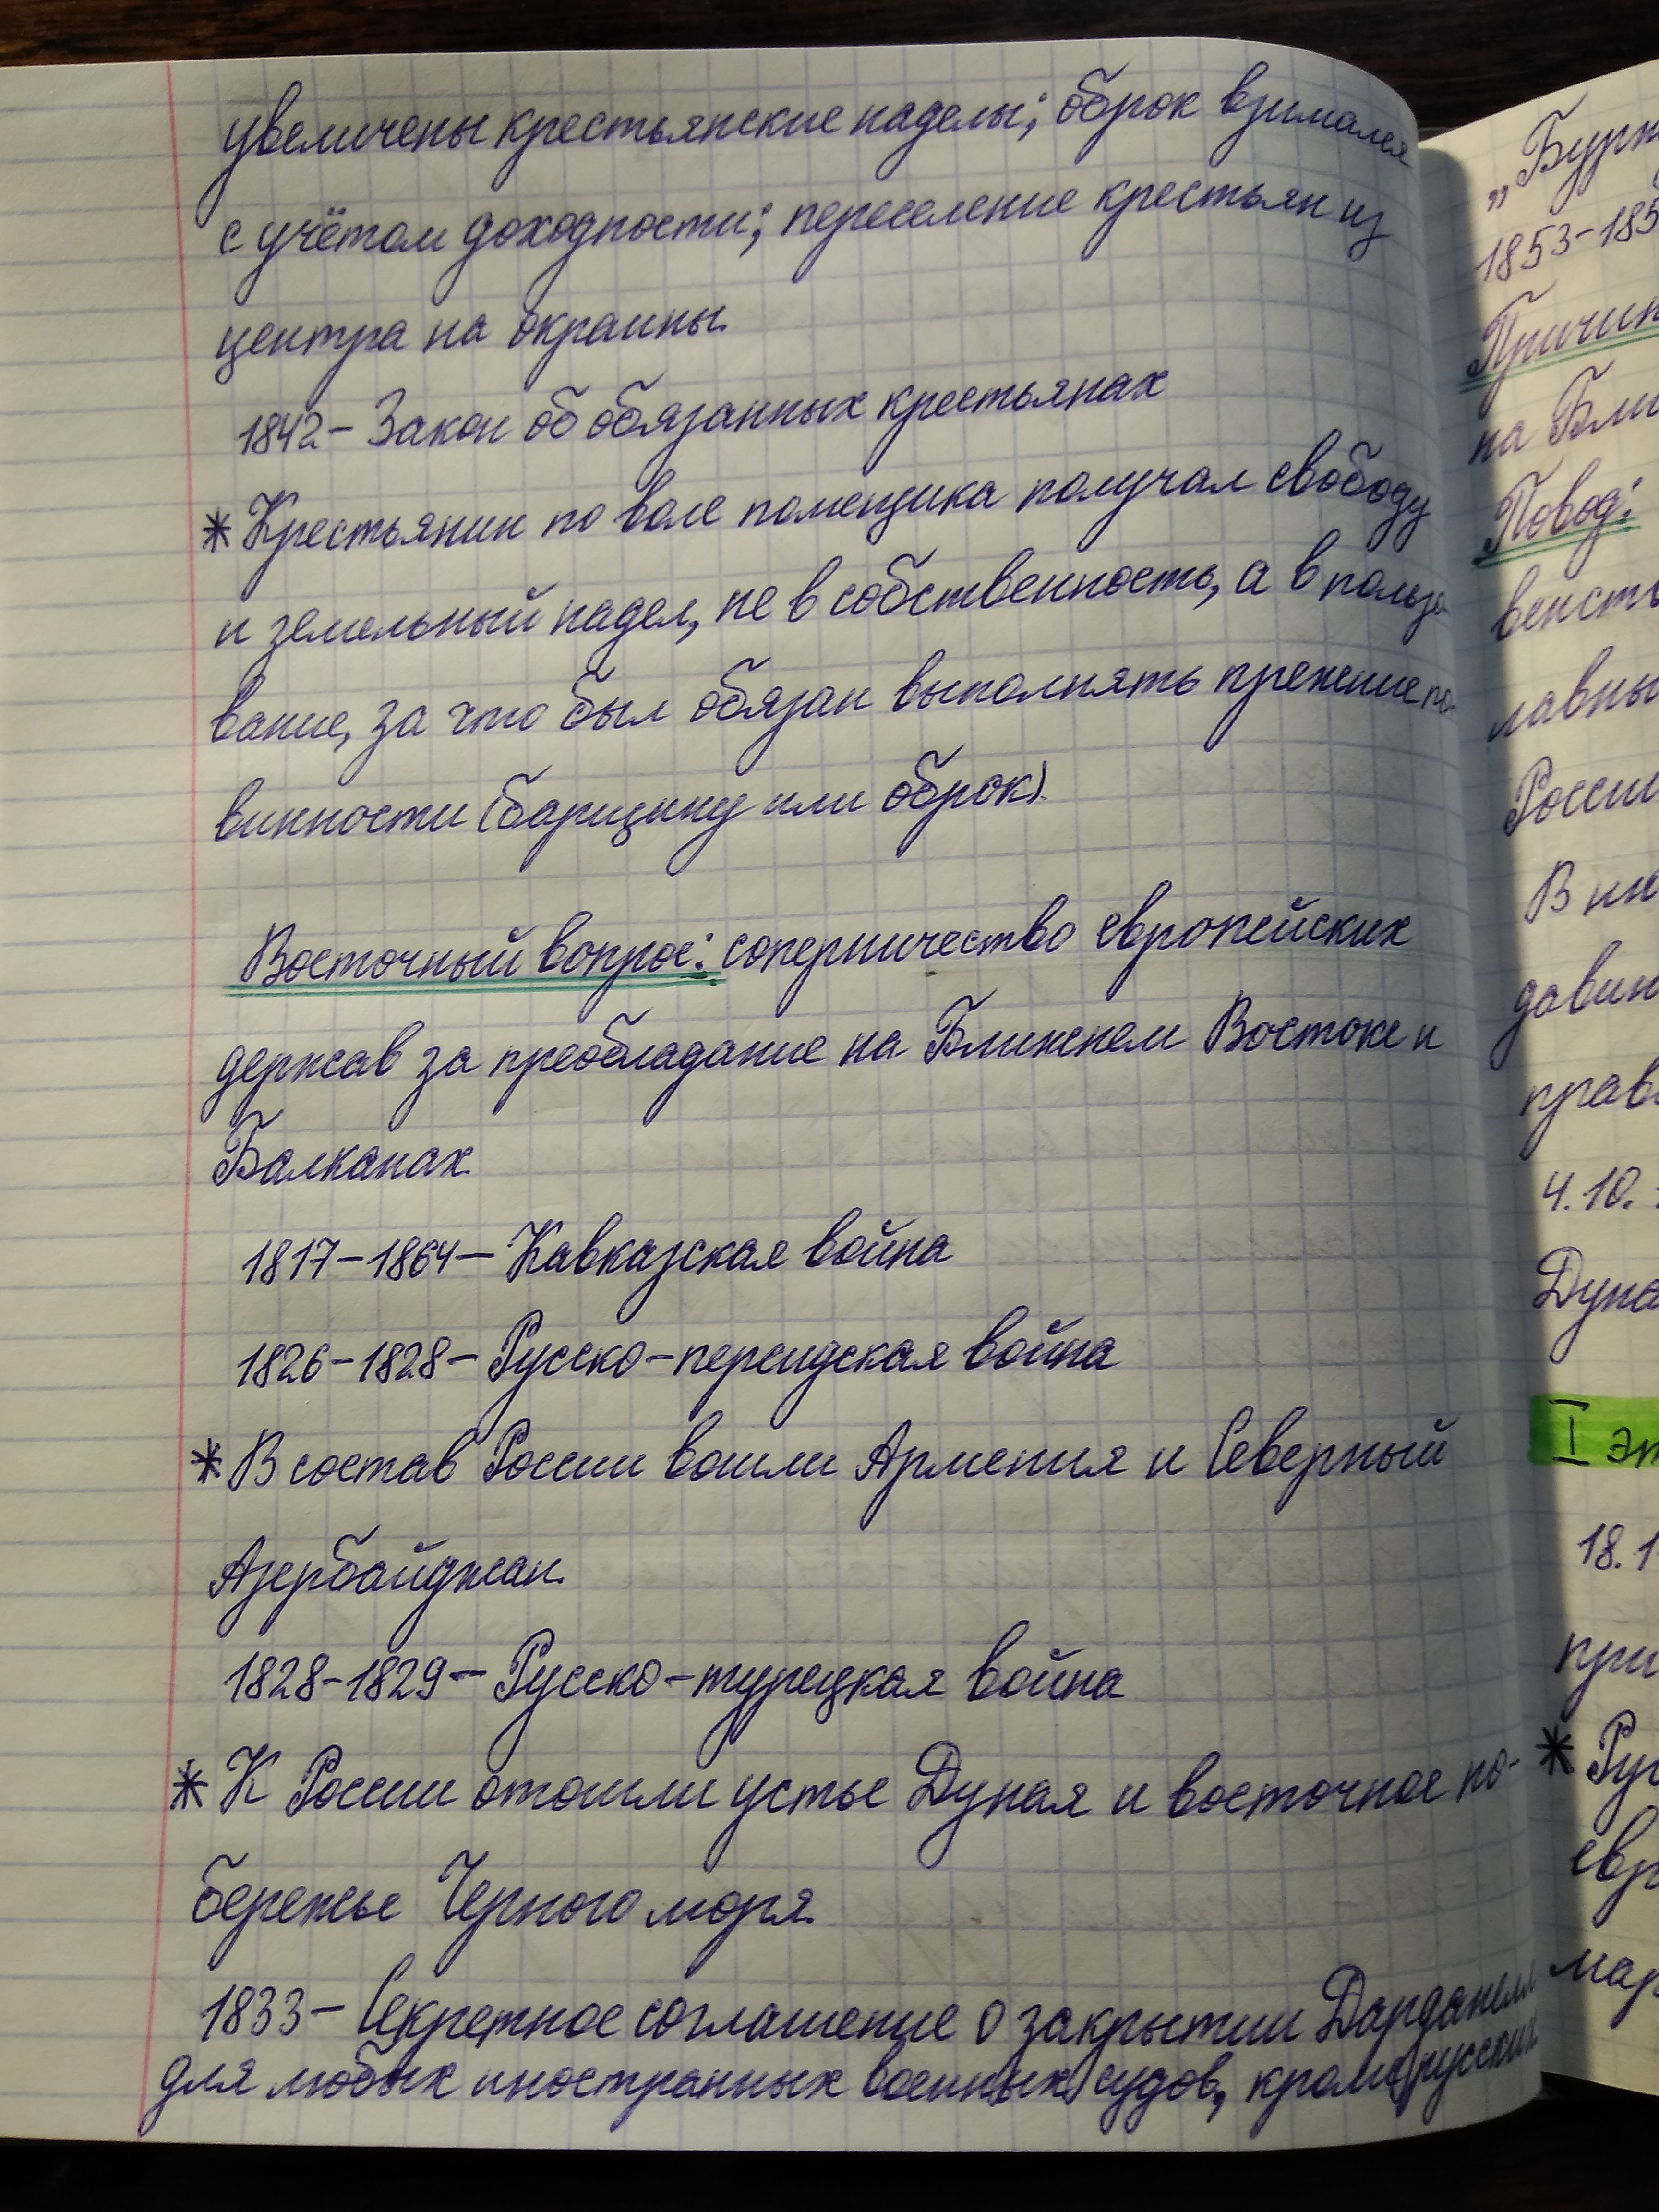 увеличены крестьянские наделы; оброк взимался
с учётом доходности; переселение крестьян из
центра на окраины.
1842 – Закон об обязанных крестьянах
* Крестьянин по воле помещика получал свободу
и земельный надел, не в собственность, а в пользо
вание, за что был обязан выполнять прежние по-
винности (барщину или оброк).
Восточный вопрос: соперничество европейских
держав за преобладание на Ближнем Востоке и
Балканах.
1817–1864 – Кавказская война
1826–1828 – Русско-персидская война
* В состав России вошли Армения и Северный
Азербайджан.
1828-1829 – Русско-турецкая война
* К России отошли устье Дуная и восточное по-
бережье Черного моря.
1833 – Секретное соглашение о закрытии Дарданелл
для любых иностранных военных судов, кроме русских
„Бурн
1853-185
Причин
на Бли
Повод:
венств
лавны
России
В ин
давин
прав
4.10.
Дуна
I эт
18.1
при
* Рус
евр
мар